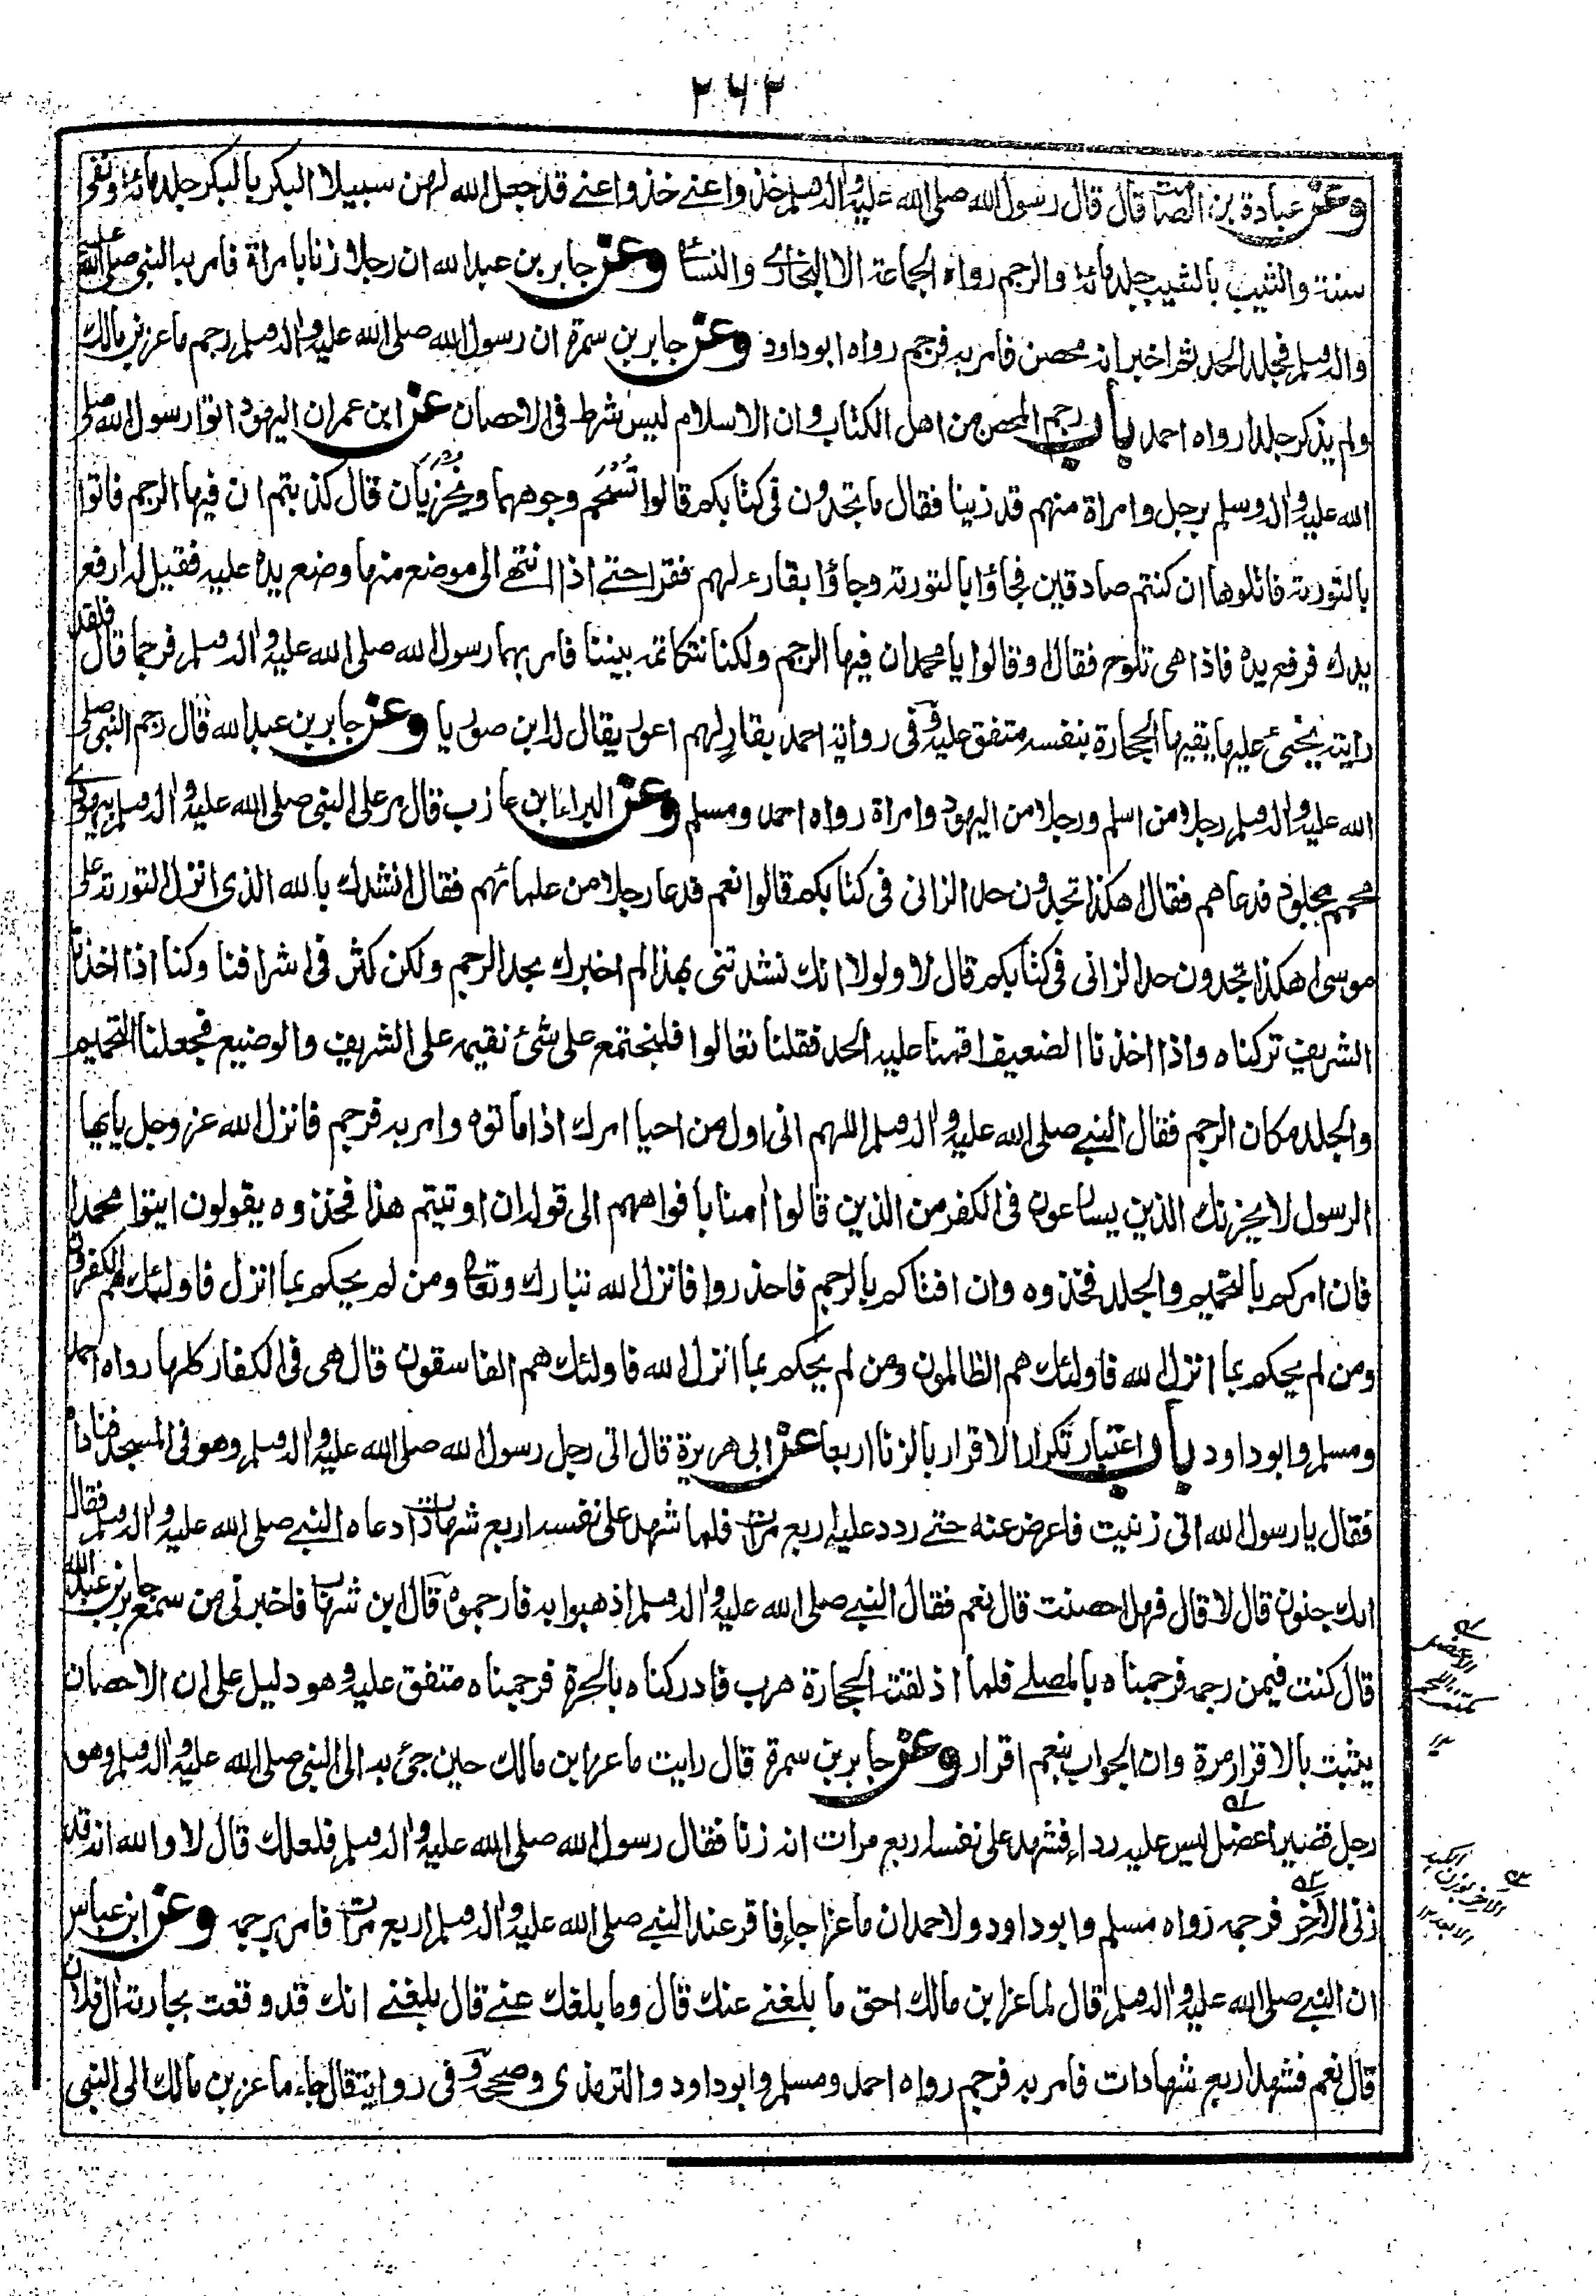 ٢٦٣
وعن عبادة بن الصامت قال قال رسول الله صلى الله عليه واله وسلم خذوا عنے خذوا عنے قد جعل الله لهن سبيلا البكر بالبكر جلد مائة ونفى
سنة والثيب بالثيب جلد مائة والرجم رواه الجماعة الا البخارے والنسائ وعن جابر بن عبد الله ان رجلا زنا بامراة فامر به النبي صلى الله عليه
واله وسلم فجلد الحد ثم اخبر انه محصن فامر به فرجم رواه ابو داود وعن جابر بن سمرة ان رسول الله صلى الله عليه واله وسلم رجم ماعز بن مالك
ولم يذكر جلدا رواه احمد باب رجم المحصن من اهل الكتاب وان الاسلام ليس شرط فى الاحصان عن ابن عمر ان اليهود اتوا رسول الله صلى
الله عليه واله وسلم برجل وامراة منهم قد زنيا فقال ما تجدون فى كتابكم قالوا تسخم وجوههما ويخزيان قال كذبتم ان فيها الرجم فاتوا
بالتورية فاتلوها ان كنتم صادقين فجاؤا بالتورية وجاؤا بقارء لهم فقرا حتے اذا انتهے الى موضع منها وضع يده عليه فقيل له ارفع
يدك فرفع يده فاذا هى تلوح فقال او قالوا يا محمد ان فيها الرجم ولكنا نتكاتمه بيننا فامر بهما رسول الله صلى الله عليه واله وسلم فرجما قال فلقد
رايته يجنئ عليها يقيها الحجارة بنفسه متفق عليه وفى رواية احمد بقارٍ لهم اعور يقال له ابن صوريا وعن جابر بن عبد الله قال رجم النبي صلى
الله عليه واله وسلم رجلا من اسلم ورجلا من اليهود وامراة رواه احمد ومسلم وعن البراء ابن عازب قال مر على النبي صلى الله عليه واله وسلم بيهودى
محمم مجلود فدعاهم فقال اهكذا تجدون حد الزانى فى كتابكم قالوا نعم فدعا رجلا من علمائهم فقال انشدك بالله الذى انزل التورية على
موسى اهكذا تجدون حد الزانى فى كتابكم قال لا ولولا انك نشدتنى بهذا لم اخبرك بحد الرجم ولكن كثر فى اشرافنا وكنا اذا اخذنا
الشريف تركناه واذا اخذنا الضعيف اقمنا عليه الحد فقلنا تعالوا فلنجتمع على شئ نقيمه على الشريف والوضيع فجعلنا التحميم
والجلد مكان الرجم فقال النبے صلى الله عليه واله وسلم اللهم انى اول من احيا امرك اذ اماتوه وامر به فرجم فانزل الله عز وجل يايها
الرسول لا يحزنك الذين يسارعون فى الكفر من الذين قالوا امنا بافواههم الى قوله ان اوتيتم هذا فخذوه يقولون ايتوا محمدا
فان امركم بالتحميم والجلد فخذوه وان افتاكم بالرجم فاحذروا فانزل الله تبارك وتعالى ومن لم يحكم بما انزل فاولئك هم الكفرون
ومن لم يحكم بما انزل الله فاولئك هم الظالمون ومن لم يحكم بما انزل الله فاولئك هم الفاسقون قال هى فى الكفار كلها رواه احمد
ومسلم وابو داود باب اعتبار تكرار الاقرار بالزنا اربعا عن ابى هريرة قال اتى رجل رسول الله صلى الله عليه واله وسلم وهو فى المسجد فناداه
فقال يا رسول الله انى زنيت فاعرض عنه حتے ردد عليه اربع مرات فلما شهد على نفسه اربع شهادات دعاه النبے صلى الله عليه واله وسلم فقال
ابك جنون قال لا قال فهل احصنت قال نعم فقال النبے صلى الله عليه واله وسلم اذهبوا به فارجموه قال ابن شهاب فاخبرنى من سمع جابر بن عبد الله
قال كنت فيمن رجمه فرجمناه بالمصلے فلما اذلقته الحجارة هرب فادركناه بالحرة فرجمناه متفق عليه وهو دليل على ان الاحصان
يثبت بالاقرار مرة وان الجواب بنعم اقرار وعن جابر بن سمرة قال رايت ماعز ابن مالك حين جئ به الى النبي صلى الله عليه واله وسلم وهو
رجل قصير اعضل ليس عليه رداء فشهد على نفسه اربع مرات انه زنا فقال رسول الله صلى الله عليه واله وسلم فلعلك قال لا والله انه قد
زنى الاخر فرجمه رواه مسلم وابو داود ولاحمد ان ماعزا جاء فاقر عند النبے صلى الله عليه واله وسلم اربع مرات فامر برجمه وعن ابن عباس
ان النبے صلى الله عليه واله وسلم قال لماعز ابن مالك احق ما بلغنے عنك قال وما بلغك عنے قال بلغنے انك قد وقعت بجارية ال فلان
قال نعم فشهد اربع شهادات فامر به فرجم رواه احمد ومسلم وابو داود والترمذى وصححه وفى رواية قال جاء ماعز بن مالك الى النبى